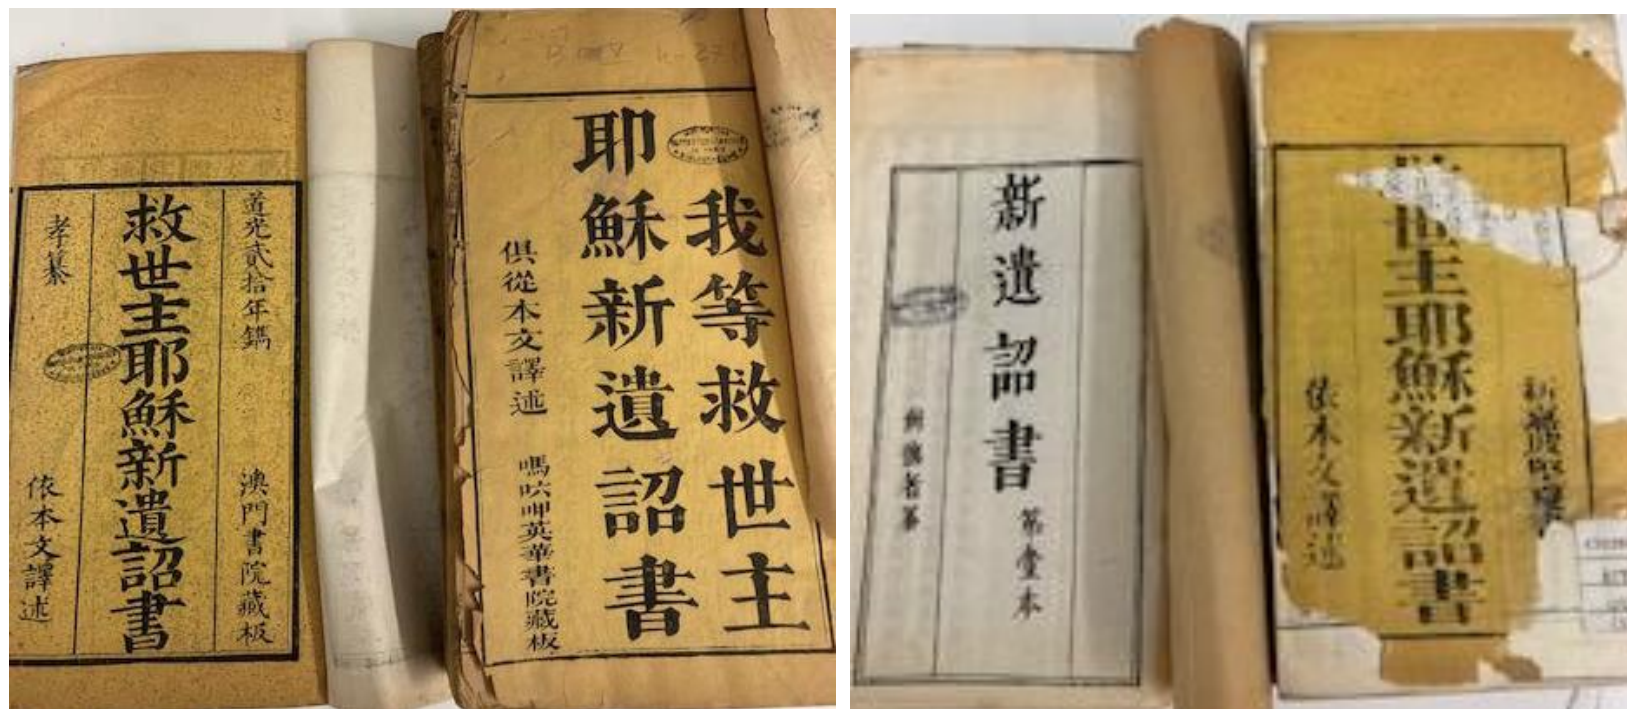 道光貳拾年鐫
澳門書院藏板
救世主耶穌新遺詔書
孝纂
依本文譯述
我等救世主
耶穌新遺詔書
俱從本文譯述
嗎㕸呷英華書院藏板
新遺詔書
第壹本
尚德者纂
新嘉坡堅夏
世主耶穌新遺詔書
依本文譯述